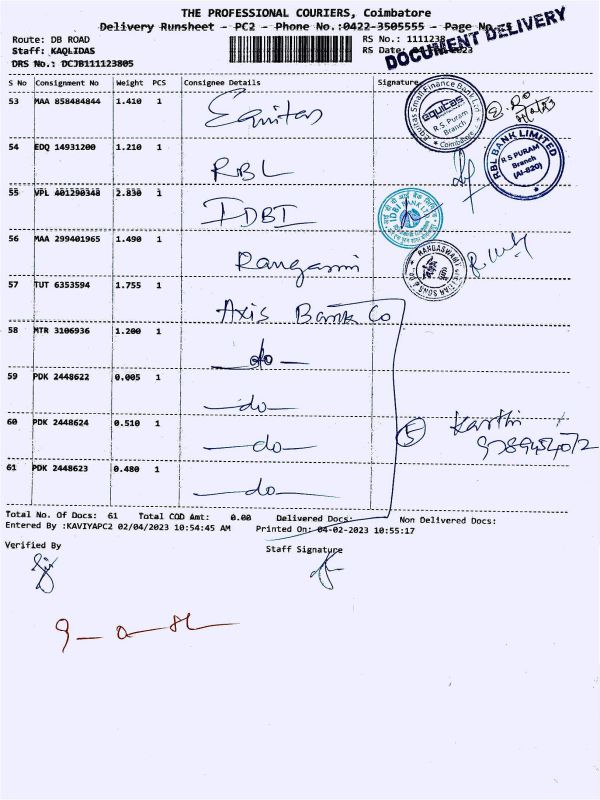 THE PROFESSIONAL COURIERS, Coimbatore
Delivery Runsheet - PC2 - Phone No.:0422-3505555 - Page No.
DOCUMENT DELIVERY
Route: DB ROAD RS No.: 1111238
Staff: KAQLIDAS RS Date: 2023
DRS No.: DCJB111123805
S No Consignment No Weight PCS Consignee Details Signature
53 MAA 858484844 1.410 1 Equitas
Equitas Small Finance Bank Ltd
equitas
R S Puram
Branch
Coimbatore
54 EDQ 14931200 1.210 1 RBL
RBL BANK LIMITED
R S PURAM
Branch
(AI-820)
55 VPL 401290348 2.830 1 IDBI
IDBI BANK LTD
56 MAA 299401965 1.490 1
57 TUT 6353594 1.755 1 Axis Bank Co
58 MTR 3106936 1.200 1 do
59 PDK 2448622 0.005 1 do
60 PDK 2448624 0.510 1 do
5 Karthi
61 PDK 2448623 0.480 1 do
Total No. Of Docs: 61 Total COD Amt: 0.00 Delivered Docs: Non Delivered Docs:
Entered By :KAVIYAPC2 02/04/2023 10:54:45 AM Printed On: 04-02-2023 10:55:17
Verified By Staff Signature